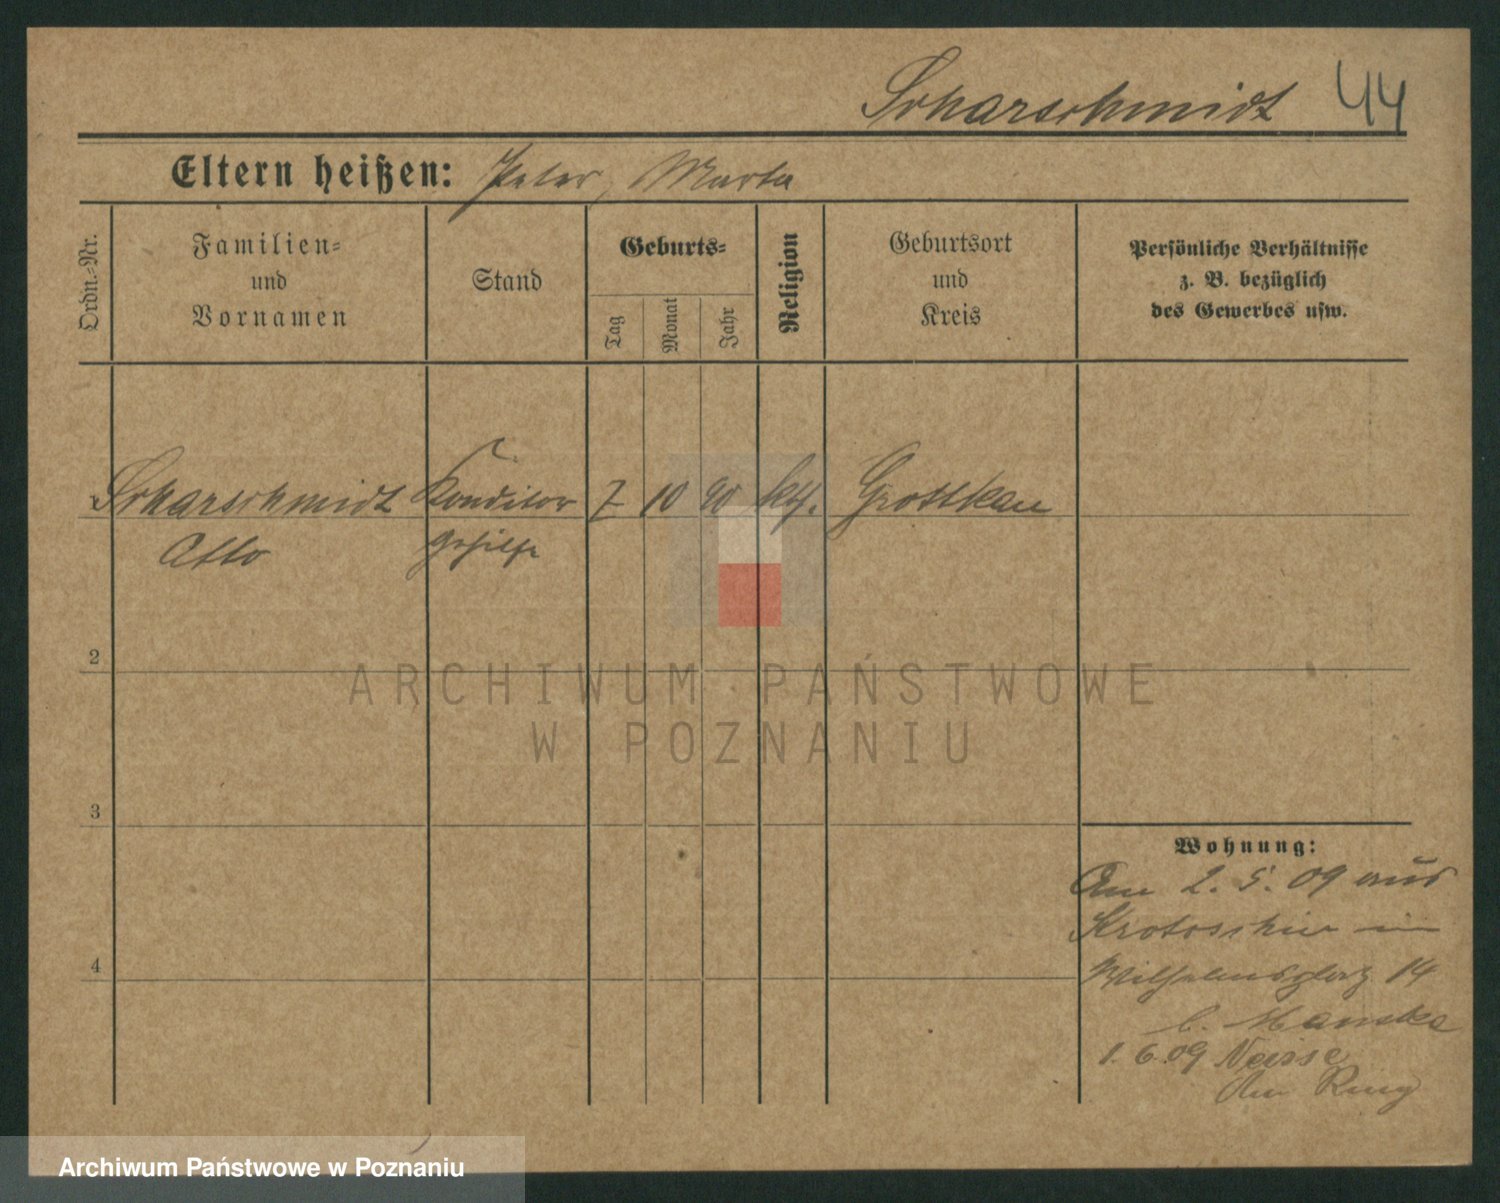 Scharschmidt 44
Eltern heißen: Peter, Marta
Ordn.-Nr.
Familien-
und
Vornamen
Stand
Geburts-
Tag
Monat
Jahr
Religion
Geburtsort
und
Kreis
Persönliche Verhältnisse
z. B. bezüglich
des Gewerbes usw.
Scharschmidt Konditor 7 10 90 kth. Grottkau
Otto gehilfe
2
3
4
Wohnung:
Am 2. 5. 09 aus
Krotoschin in
Wilhelmsplatz 14
b. Manske
1. 6. 09 Neisse
Am Ring
ARCHIWUM PAŃSTWOWE
W POZNANIU
Archiwum Państwowe w Poznaniu